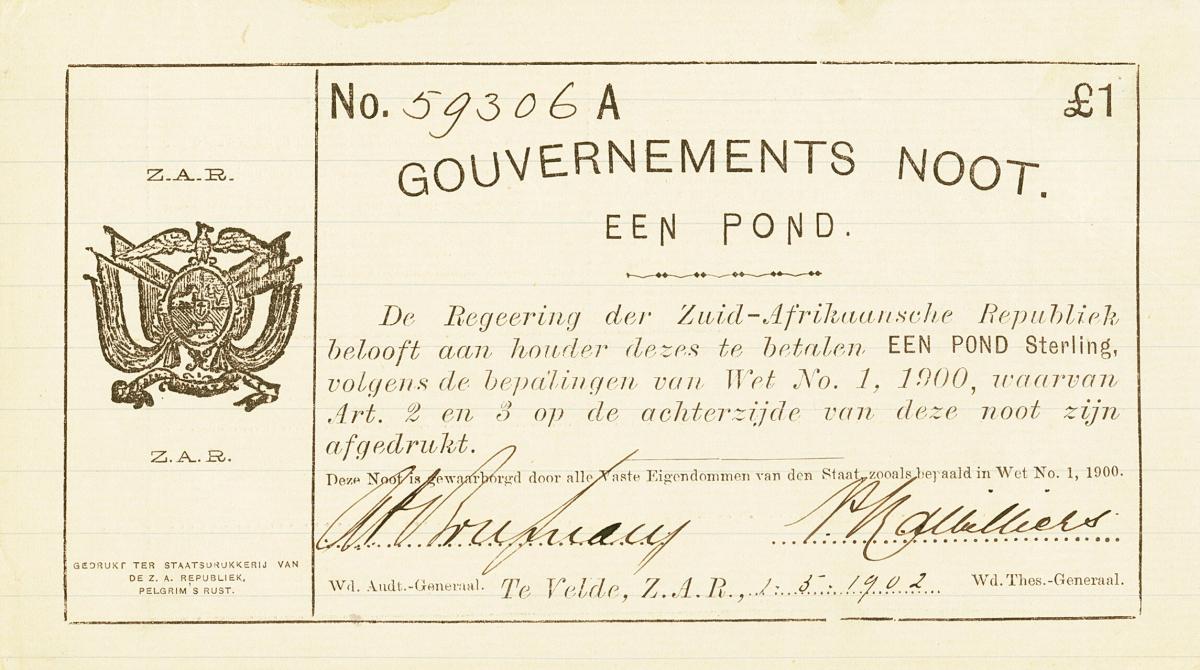 No. 59306 A
£1
GOUVERNEMENTS NOOT.
EEN POND.
De Regeering der Zuid-Afrikaansche Republiek
belooft aan houder dezes te betalen EEN POND Sterling,
volgens de bepalingen van Wet No. 1, 1900, waarvan
Art. 2 en 3 op de achterzijde van deze noot zijn
afgedrukt.
Deze Noot is gewaarborgd door alle Vaste Eigendommen van den Staat, zooals bepaald in Wet No. 1, 1900.
Wd. Audt.-Generaal. Te Velde, Z.A.R., 1. 5. 1902 Wd. Thes.-Generaal.
Z.A.R.
Z.A.R.
GEDRUKT TER STAATSDRUKKERIJ VAN
DE Z. A. REPUBLIEK,
PELGRIM'S RUST.